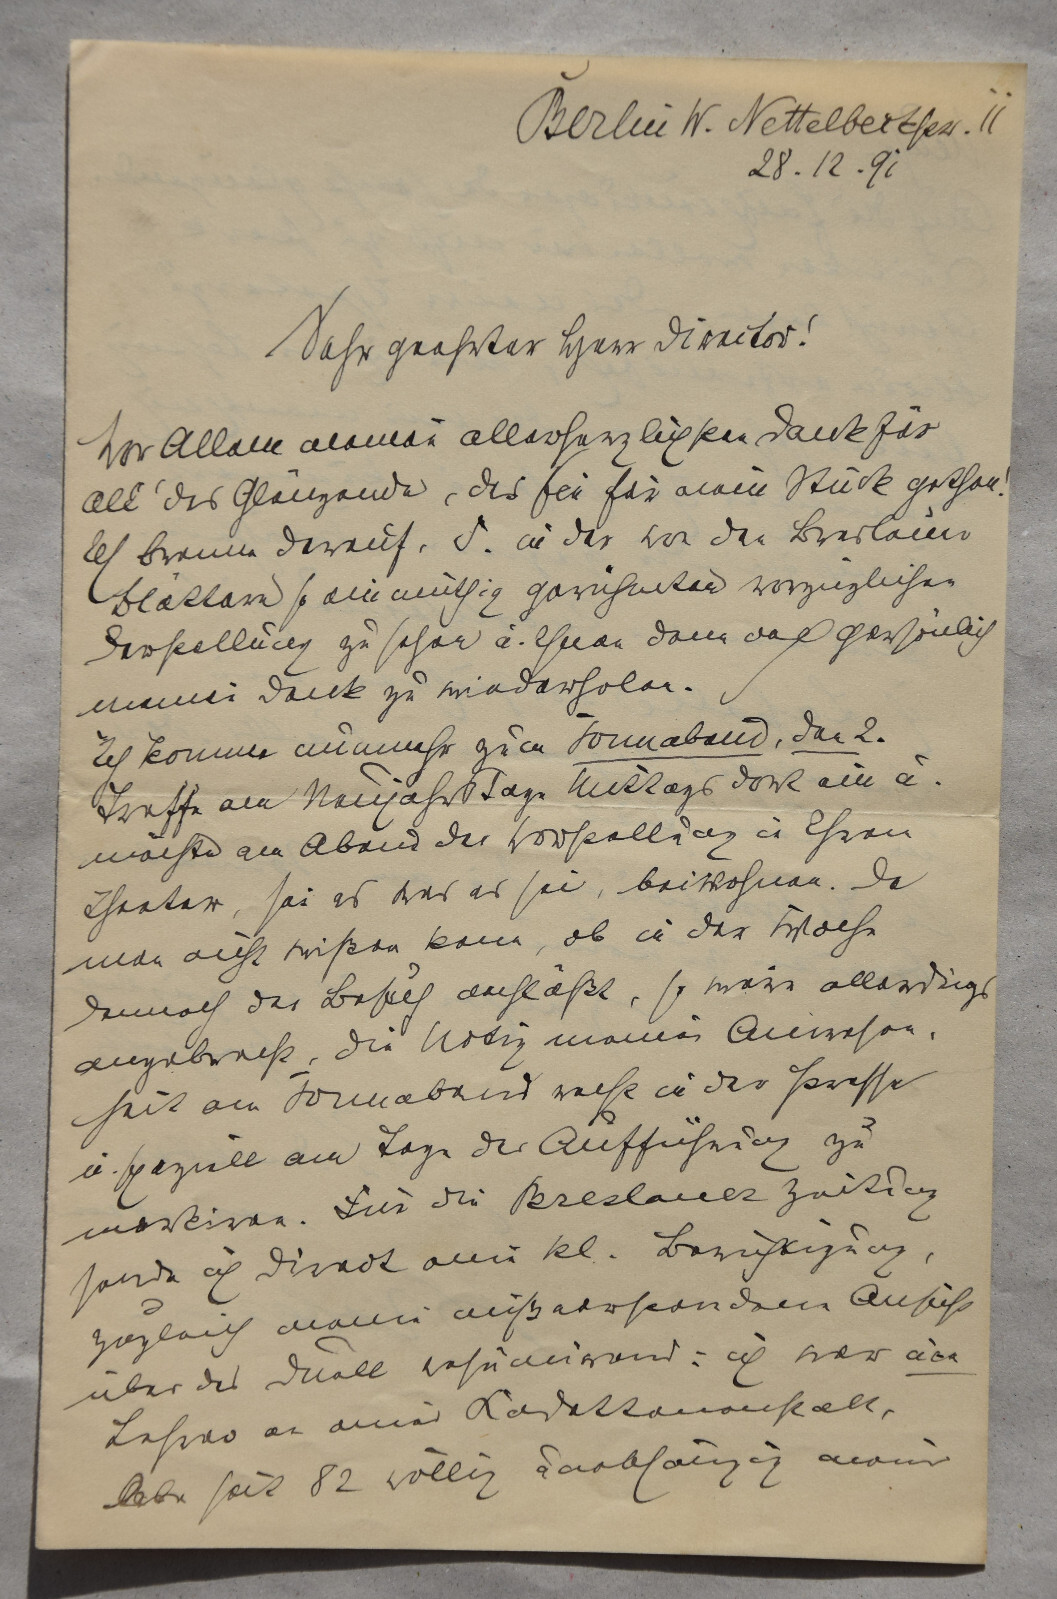 Berlin W. Nettelbeckstr. 11
28. 12. 91
Sehr geehrter Herr Director!
Vor Allem meinen allerherzlichsten Dank für
all' das Glänzende, das Sie für mein Stück gethan!
Ich brenne darauf, S. in der von den Breslauer
Blättern so einmüthig gerühmten vorzüglichen
Darstellung zu sehen u. Ihnen dann auch persönlich
meinen Dank zu wiederholen.
Ich komme nunmehr zum Sonnabend, den 2.
Treffe am Neujahrs Tage Mittags dort ein u.
möchte am Abend der Vorstellung in Ihrem
Theater, sei es was es sei, beiwohnen. Da
man nicht wissen kann, ob in der Woche
darnach der Besuch nachläßt, so wäre allerdings
angebracht, die Notiz meiner Anwesen-
heit am Sonnabend recht in der Presse
u. speziell am Tage der Aufführung zu
markiren. Für die Breslauer Zeitung
sende ich direct eine kl. Berichtigung,
zugleich meine mißverstandene Ansicht
über das Duell resumirend: ich war nie
Lehrer an einer Kadettenanstalt,
lebe seit 82 völlig unabhängig meiner